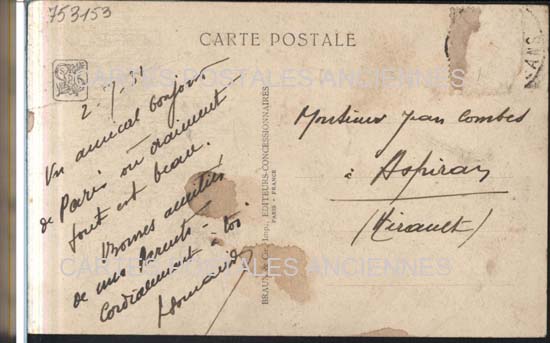 753153
CARTE POSTALE
CARTES POSTALES ANCIENNES
2-7-31
Un amical bonjour
de Paris où vraiment
tout est beau.
Bonnes amitiés
de mes Parents -
Cordialement à toi
Monsieur Jean Combes
à Aspiran
(Hérault)
BRAUN & Cie, Imp., EDITEURS-CONCESSIONNAIRES
PARIS - FRANCE
CARTES POSTALES ANCIENNES